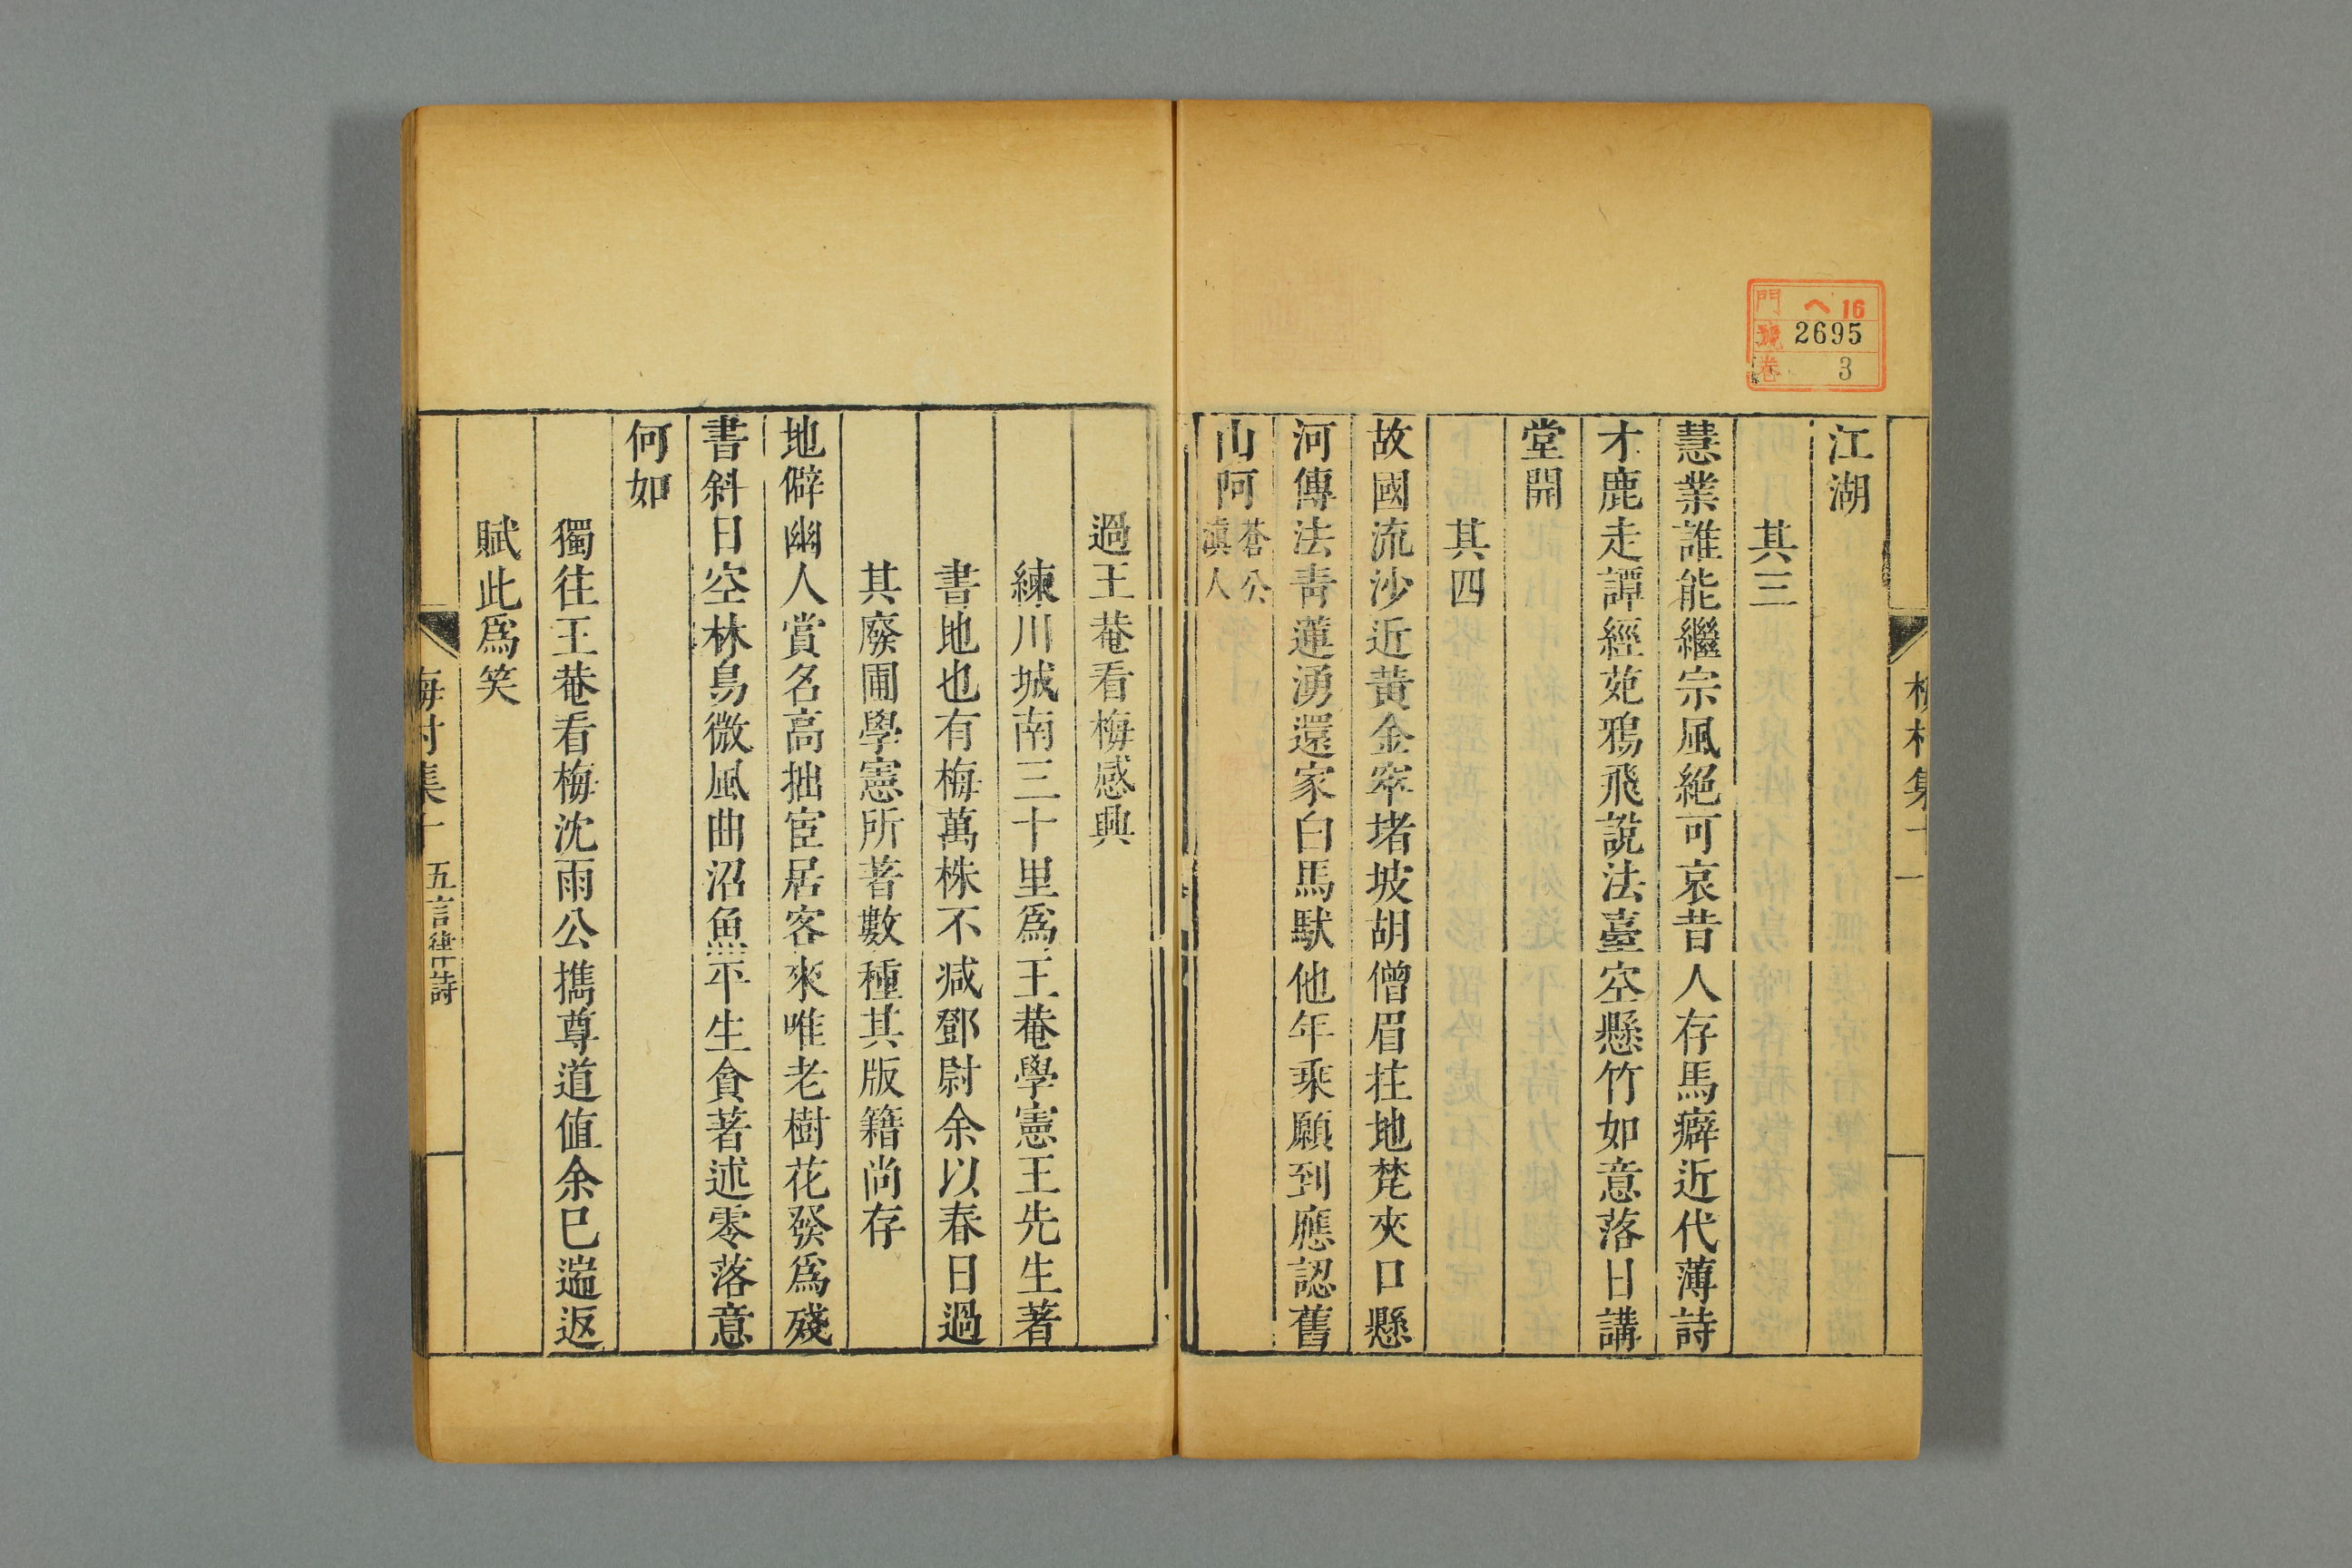 門 ヘ 16
號 2695
卷 3
江湖
其三
慧業誰能繼宗風絕可哀昔人存馬癖近代薄詩
才鹿走譚經苑鴉飛説法臺空懸竹如意落日講
堂開
其四
故國流沙近黃金窣堵坡胡僧眉拄地梵夾口懸
河傳法青蓮湧還家白馬馱他年乘願到應認舊
山阿蒼公
滇人
過王菴看梅感興
練川城南三十里爲王菴學憲王先生著
書地也有梅萬株不減鄧尉余以春日過
其廢圃學憲所著數種其版籍尚存
地僻幽人賞名高拙宦居客來唯老樹花發爲殘
書斜日空林鳥微風曲沼魚平生貪著述零落意
何如
獨往王菴看梅沈雨公攜尊道值余巳遄返
賦此爲笑
梅村集十 五言律詩